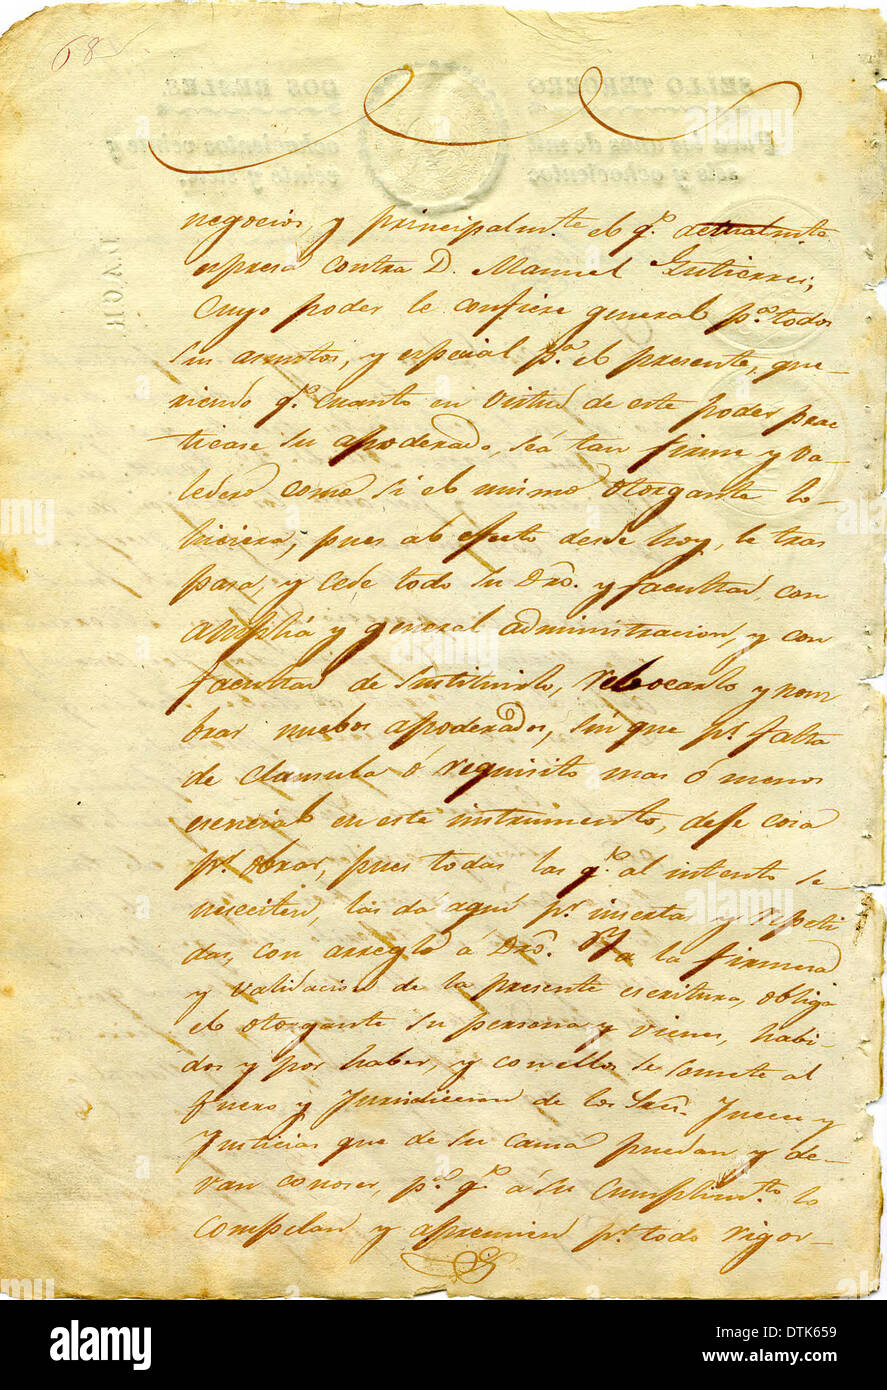 68
negocios, y principalmte. el qe. detualmte.
espresa contra D. Manuel Gutierres;
Cuyo poder le confiere general pa. todos
sus asuntos, y especial pa. el presente, que-
riendo qe. cuanto en virtud de este poder prac
ticase su apoderado, seá tan firme y va-
ledero como si el mismo otorgante lo
hiciera, pues al efecto desde hoy, le tras
pasa, y cede todo su Dro. y facultad, con
ampliá y general administracion, y con
facultad de sustituirlo, rebocarlo y nom
brar nuebos apoderados, sin que pr. falta
de clausula ó requisito mas ó menos
esencial en este instrumento, defe cosa
pr. obrar, pues todas las qe. al intento se
nesciten, las dá aquí pr. insertas y repeti
das, con arreglo á Dro. Ya la firmesa
y validacion de la presente escritura, obliga
el otorgante su persona y vienes, habi-
dos y por haber, y con ellos se somete al
fuero y Jurisdiccion de los Sres. Jueces y
Justicias que de su causa puedan y de-
van conoser, pa. qe. á su cumplimto. lo
compelan y apremien pr. todo rigor-
alamy
Image ID: DTK659
www.alamy.com